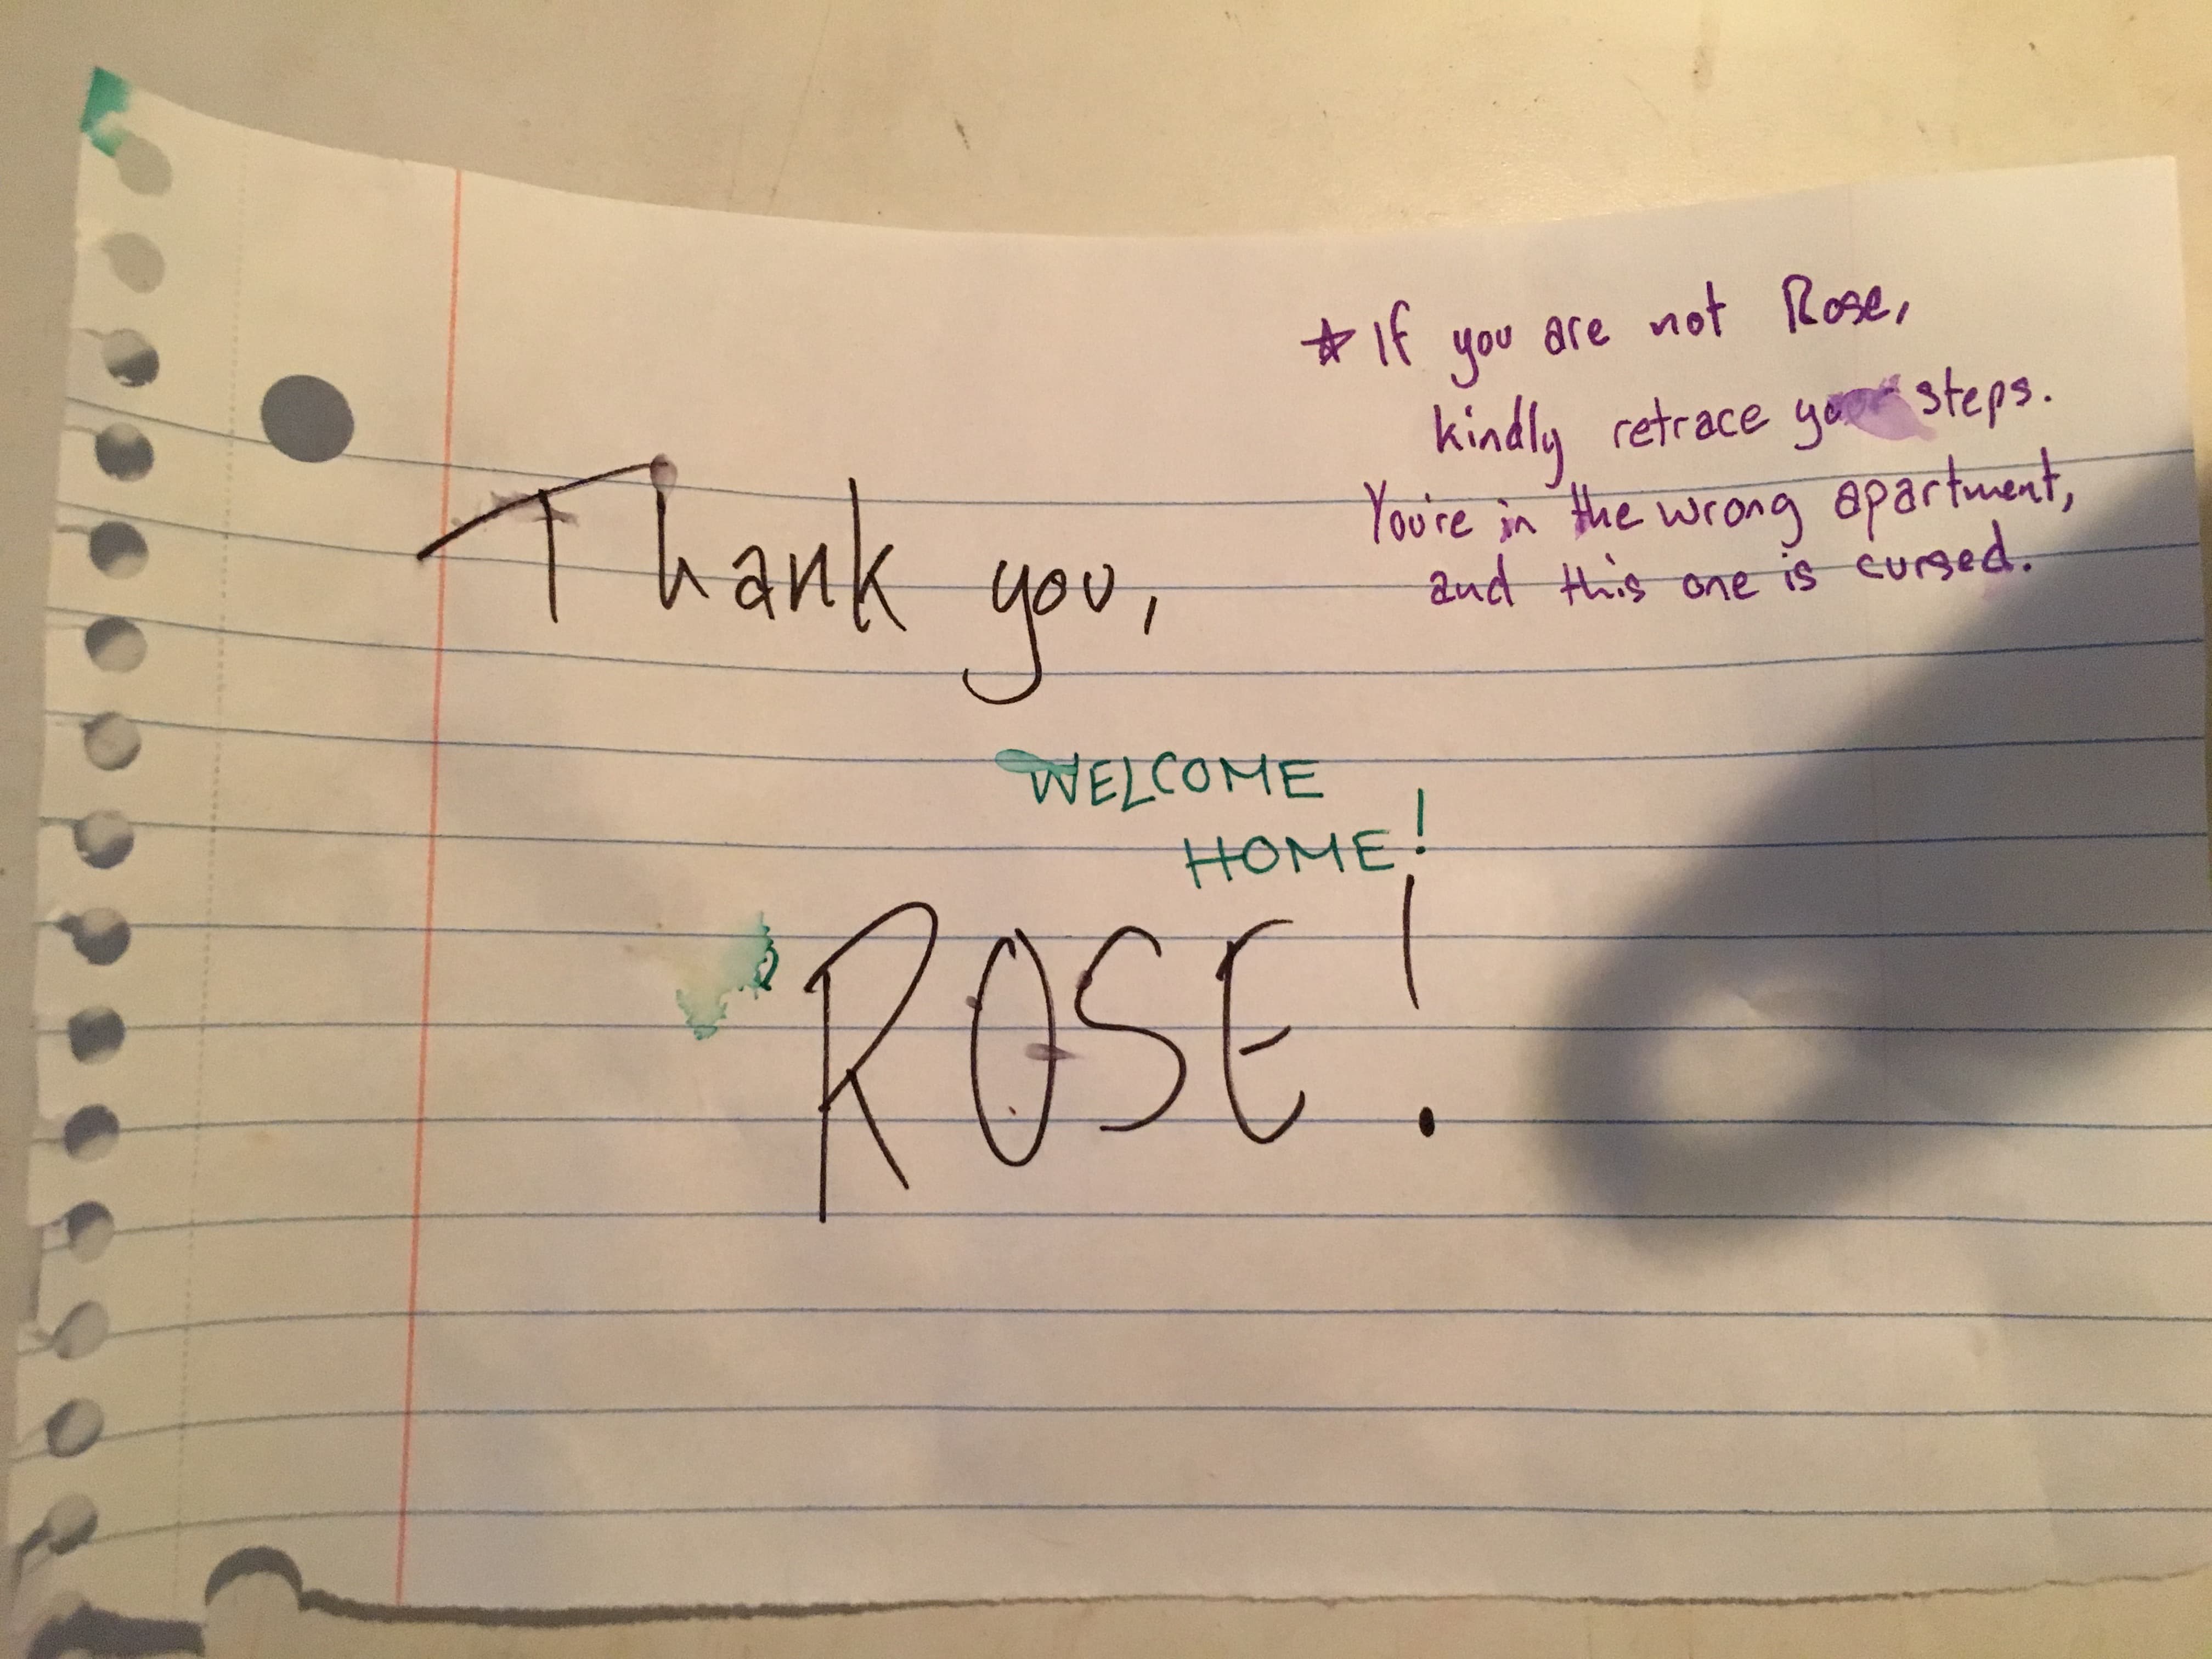 ☆ If you are not Rose,
kindly retrace your steps.
You're in the wrong apartment,
and this one is cursed.
Thank you,
WELCOME
HOME!
ROSE!